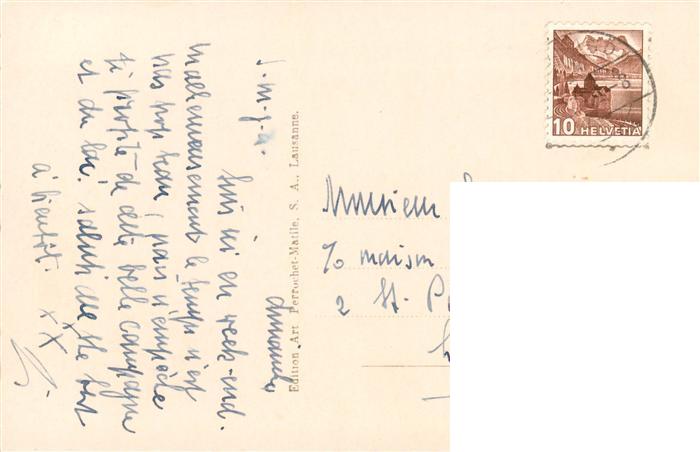 J. m. g. a.
dimanche
suis ici en week-end.
malheureusement le temps n'est
pas trop beau, mais n'empêche
je profite de cette belle campagne
et du lac. salut
à bientôt. x x
Edition Art Perrochet-Matile, S. A., Lausanne.
10 HELVETIA
Monsieur
c/o maison
2 St. P